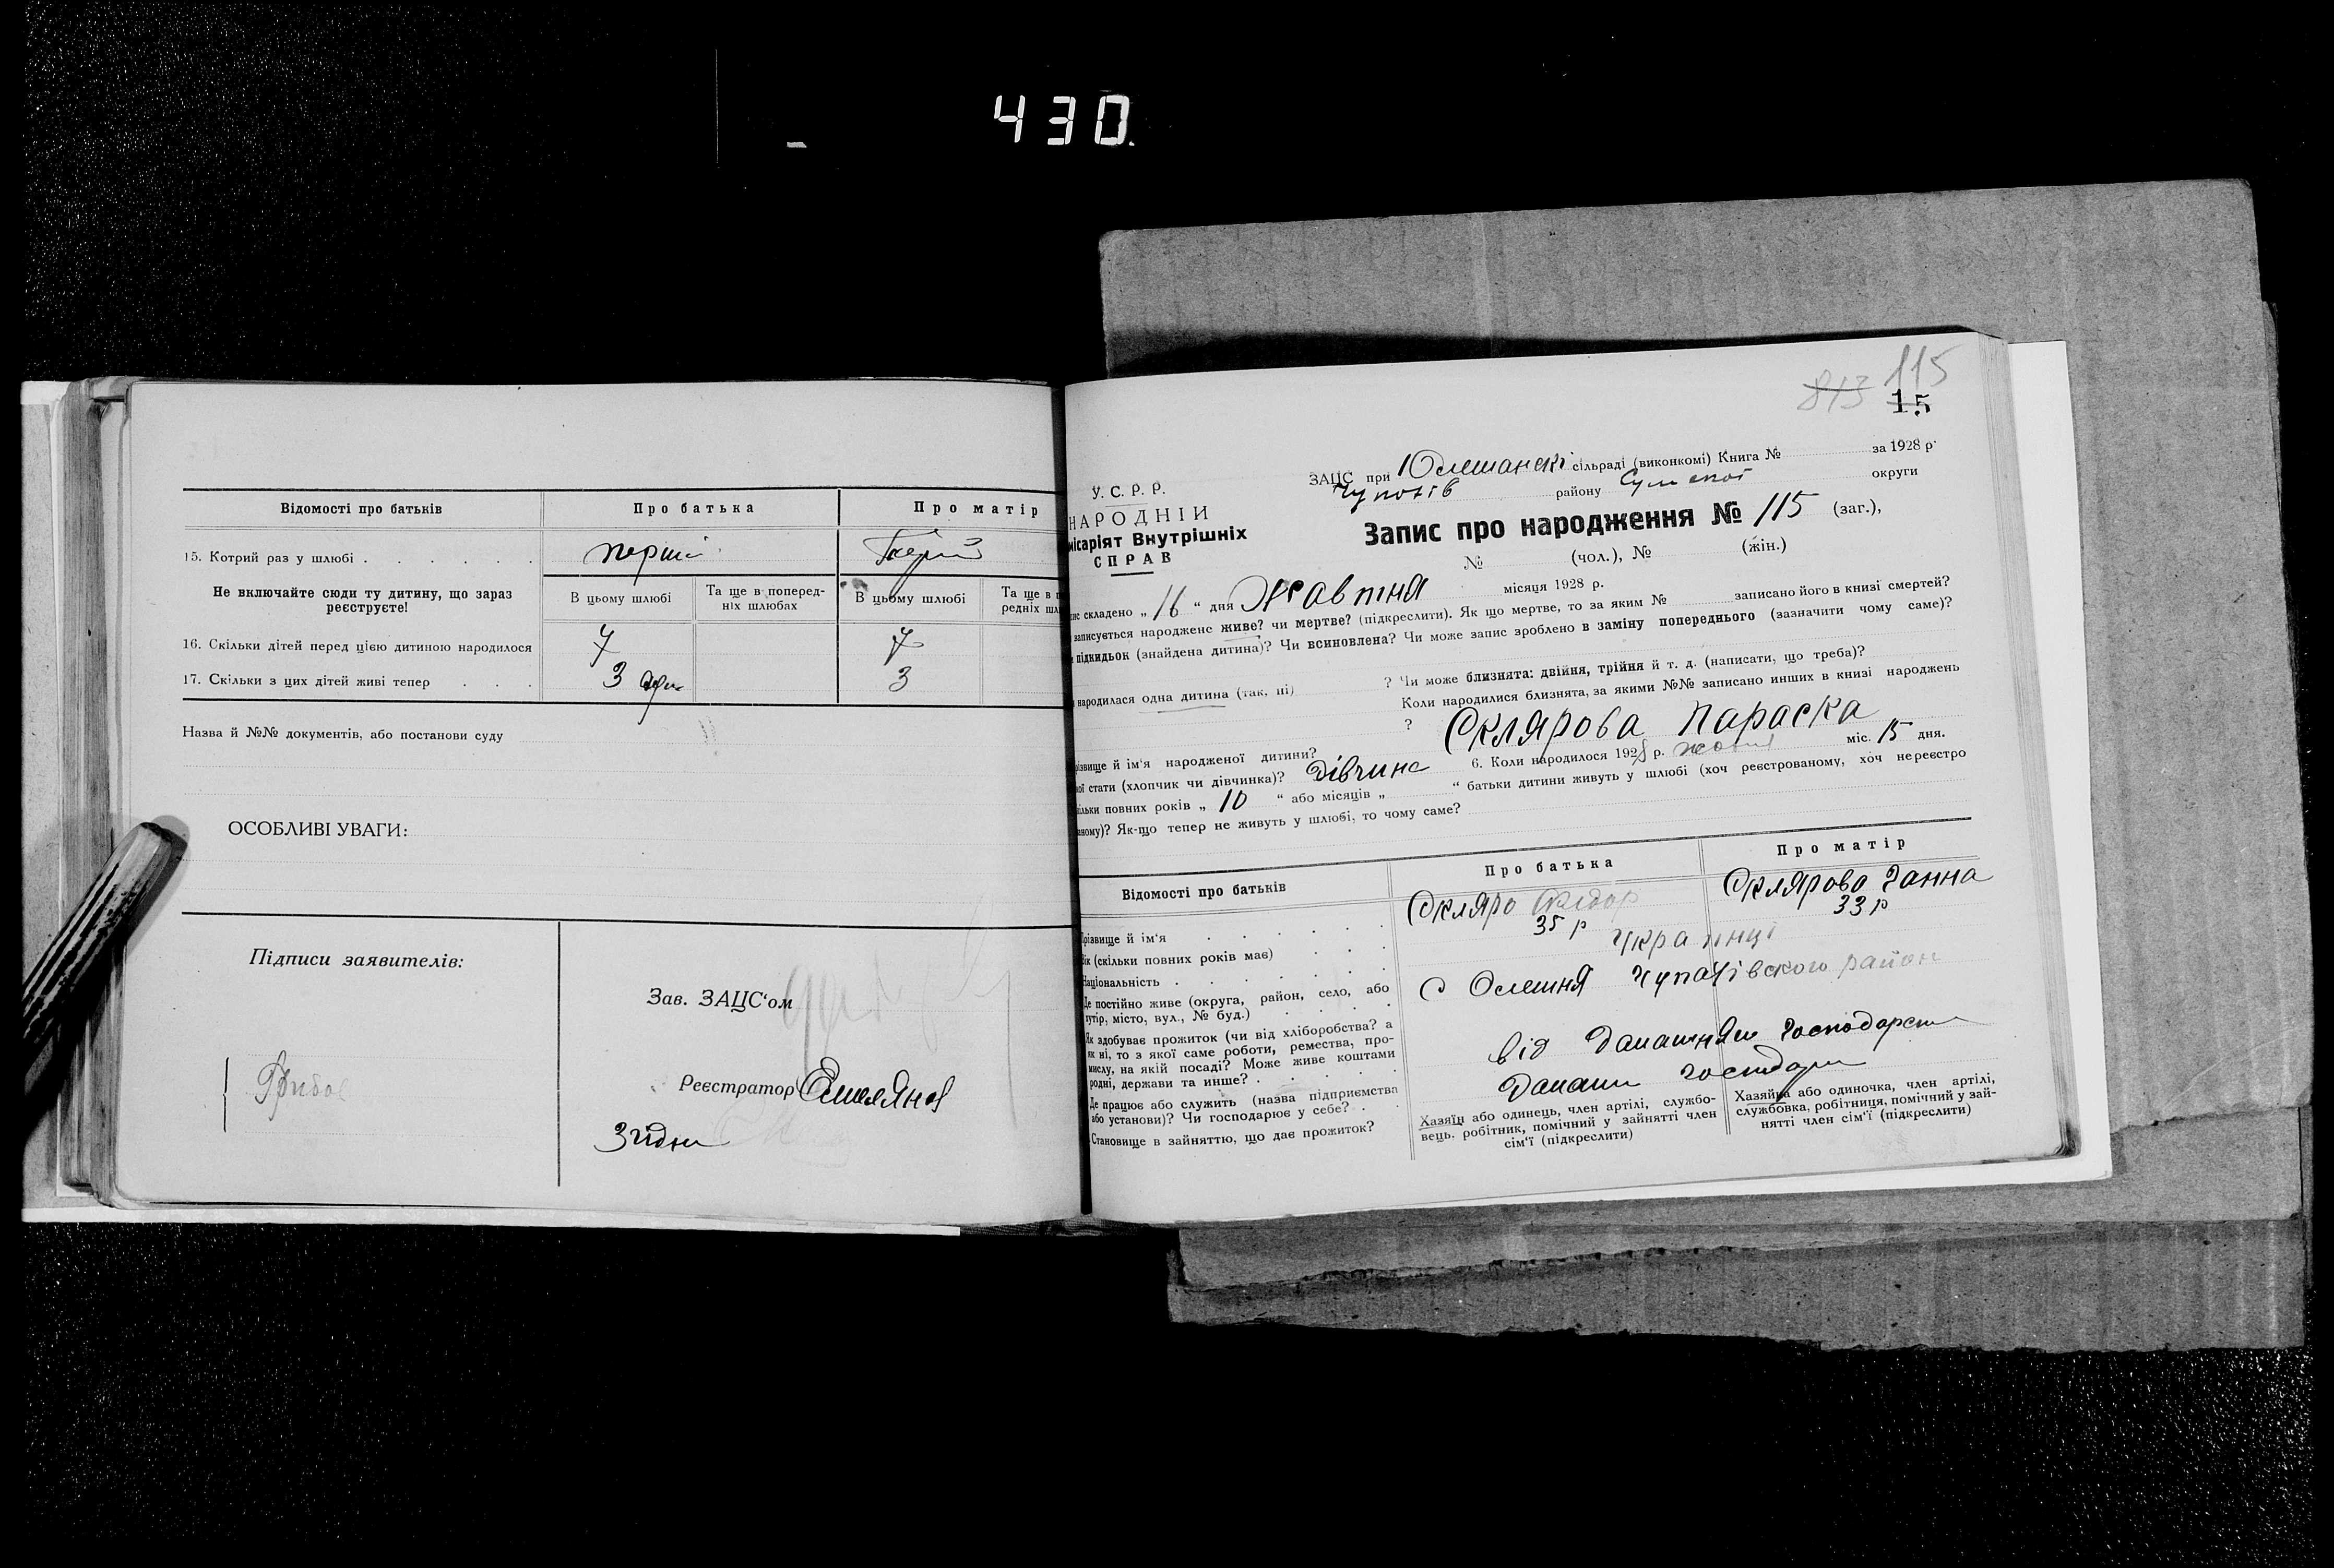 430.
Відомості про батьків
Про батька
Про матір
15. Котрий раз у шлюбі
перший
Не включайте сюди ту дитину, що зараз реєструєте!
В цьому шлюбі
Та ще в поперед-
ніх шлюбах
В цьому шлюбі
Та ще в п
редніх шл
16. Скільки дітей перед цією дитиною народилося
7
7
17. Скільки з цих дітей живі тепер
3
3
Назва й №№ документів, або постанови суду
ОСОБЛИВІ УВАГИ:
Підписи заявителів:
Зав. ЗАЦС'ом
Реєстратор Емелянов
813 115
15
У. С. Р. Р.
НАРОДНІЙ
місаріят Внутрішніх
СПРАВ
ЗАЦС при Юлешанскі сільраді (виконкомі) Книга № за 1928 р.
району Сумскої округи
Запис про народження № 115 (заг.),
№ (чол.), № (жін.)
ис складено „ 16 “ дня Жавтня місяця 1928 р.
записується народжене живе? чи мертве? (підкреслити). Як що мертве, то за яким № записано його в книзі смертей?
підкидьок (знайдена дитина)? Чи всиновлена? Чи може запис зроблено в заміну попереднього (зазначити чому саме)?
народилася одна дитина (так, ні) ? Чи може близнята: двійня, трійня й т. д. (написати, що треба)?
Коли народилися близнята, за якими №№ записано инших в книзі народжень
?
різвище й ім'я народженої дитини? Склярова Параска
ої стати (хлопчик чи дівчинка)? Дівчина 6. Коли народилося 1928 р. жовтня міс. 15 дня.
ільки повних років „ 10 “ або місяців „ “ батьки дитини живуть у шлюбі (хоч реєстрованому, хоч нереєстро
аному)? Як-що тепер не живуть у шлюбі, то чому саме?
Відомості про батьків
Про батька
Про матір
Прізвище й ім'я
Скляро
Склярова Ганна
Вік (скільки повних років має)
35 р
33 р
Національність
Українці
Де постійно живе (округа, район, село, або
хутір, місто, вул., № буд.)
С Олешня Чупахівского район
Як здобуває прожиток (чи від хліборобства? а
як ні, то з якої саме роботи, ремества, про-
мислу, на якій посаді? Може живе коштами
родні, держави та инше?
від
Де працює або служить (назва підприємства
або установи)? Чи господарює у себе?
Становище в зайняттю, що дає прожиток?
Хазяїн або одинець, член артілі, службо-
вець, робітник, помічний у зайнятті член
сім'ї (підкреслити)
Хазяйка або одиночка, член артілі,
службовка, робітниця, помічний у зай-
нятті член сім'ї (підкреслити)